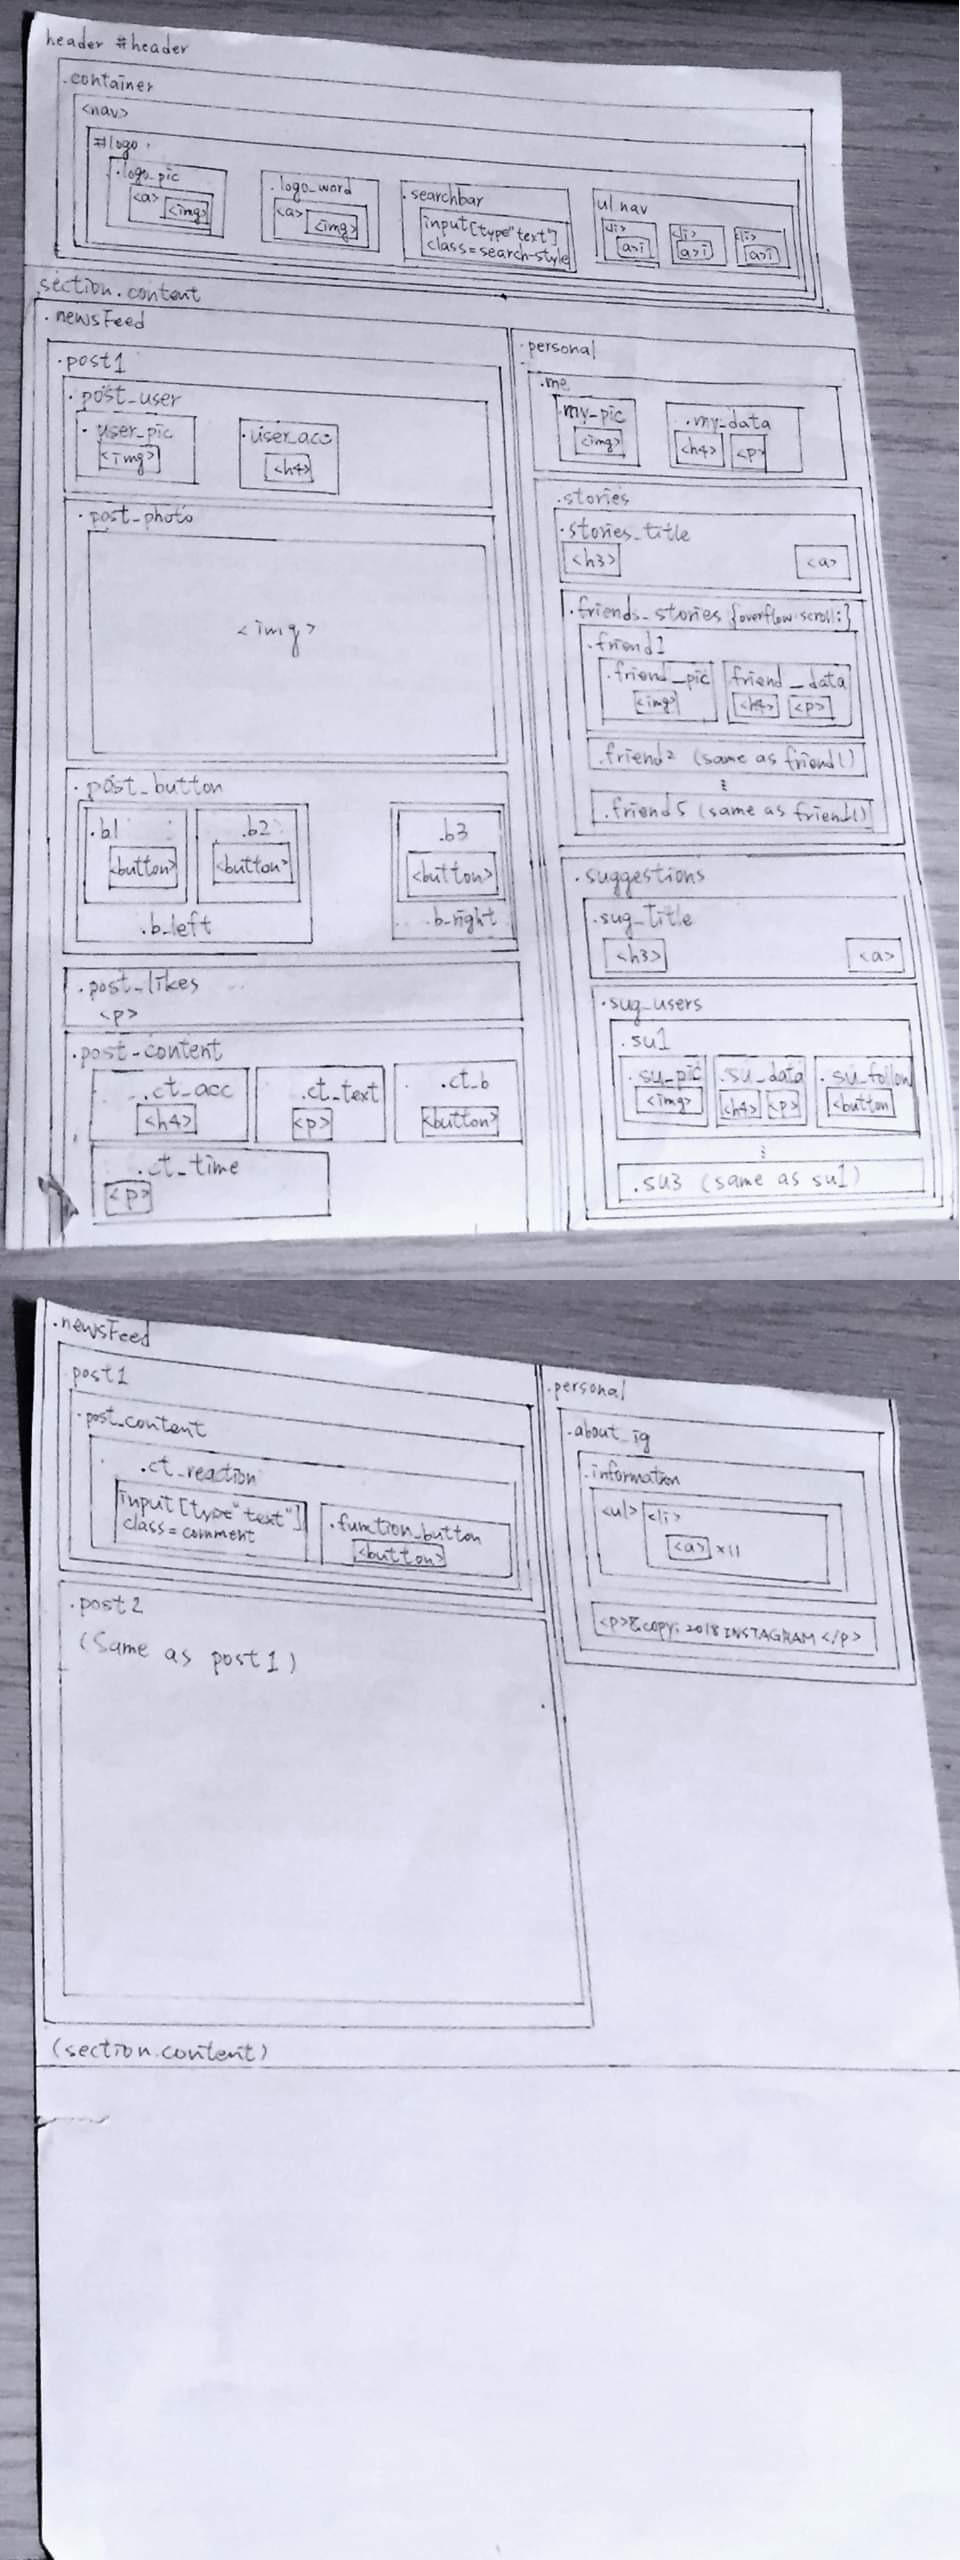 header #header
.container
<nav>
#logo
.logo_pic
<a> <img>
.logo_word
<a> <img>
.searchbar
input[type"text"]
class=search-style
ul nav
<li> <li> <li>
a>i a>i a>i
section.content
.newsFeed
.post1
.post_user
.user_pic
<img>
.user_acc
<h4>
.post_photo
<img>
.post_button
.b1 .b2 .b3
<button> <button> <button>
.b_left .b_right
.post_likes
<p>
.post_content
.ct_acc .ct_text .ct_b
<h4> <p> <button>
.ct_time
<p>
.personal
.me
.my_pic .my_data
<img> <h4> <p>
.stories
.stories_title
<h3> <a>
.friends_stories {overflow:scroll;}
.friend1
.friend_pic friend_data
<img> <h4> <p>
.friend2 (same as friend1)
.friend5 (same as friend1)
.suggestions
.sug_title
<h3> <a>
.sug_users
.su1
.su_pic .su_data .su_follow
<img> <h4> <p> <button
.su3 (same as su1)
.newsFeed
post1
.post_content
.ct_reaction
input[type"text"]
class=comment
.function_button
<button>
.post2
(Same as post1)
.personal
.about_ig
.information
<ul> <li>
<a> x11
<p>&copy; 2018 INSTAGRAM </p>
(section.content)